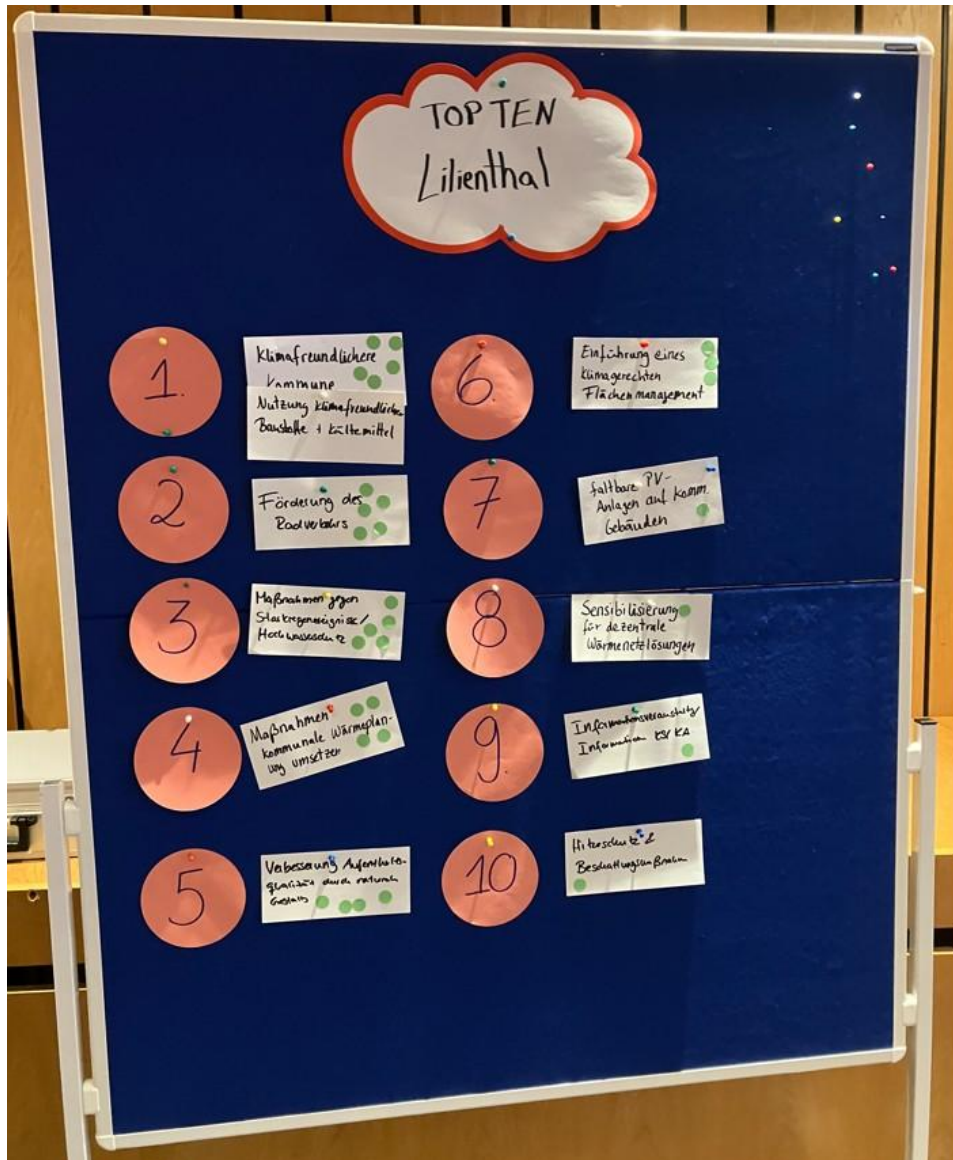 TOP TEN
Lilienthal
1.
Klimafreundlichere
Kommune
Nutzung klimafreundlicher
Baustoffe + Kältemittel
2
Förderung des
Radverkehrs
3
Maßnahmen gegen
Starkregenereignisse/
Hochwasserschutz
4
Maßnahmen
kommunale Wärmeplan-
ung umsetzen
5
Verbesserung Aufenthalts-
qualität durch
6.
Einführung eines
klimagerechten
Flächenmanagement
7
faltbare PV-
Anlagen auf komm.
Gebäuden
8
Sensibilisierung
für dezentrale
Wärmenetzlösungen
9.
Information
10
Hitzeschutz &